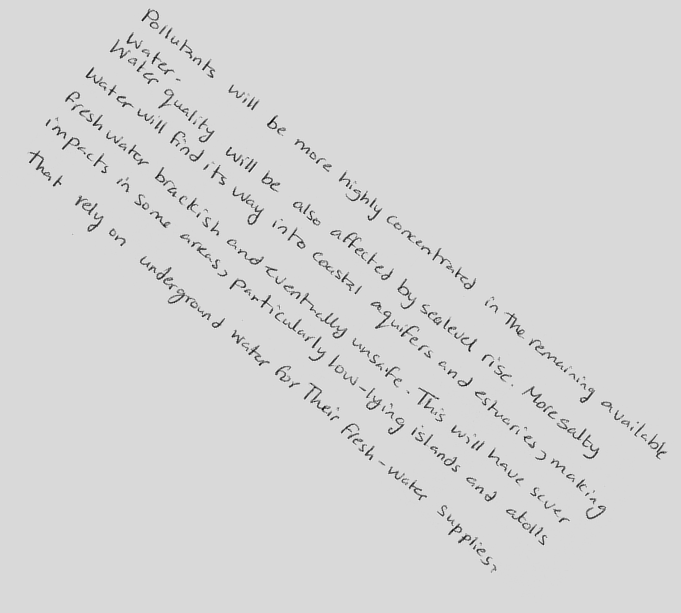 Pollutants will be more highly concentrated in the remaining available
water.
Water quality will be also affected by sealevel rise. More salty
water will find its way into coastal aquifers and estuaries, making
fresh water brackish and eventually unsafe. This will have sever
impacts in some areas, particularly low-lying islands and atolls
that rely on underground water for their fresh-water supplies.